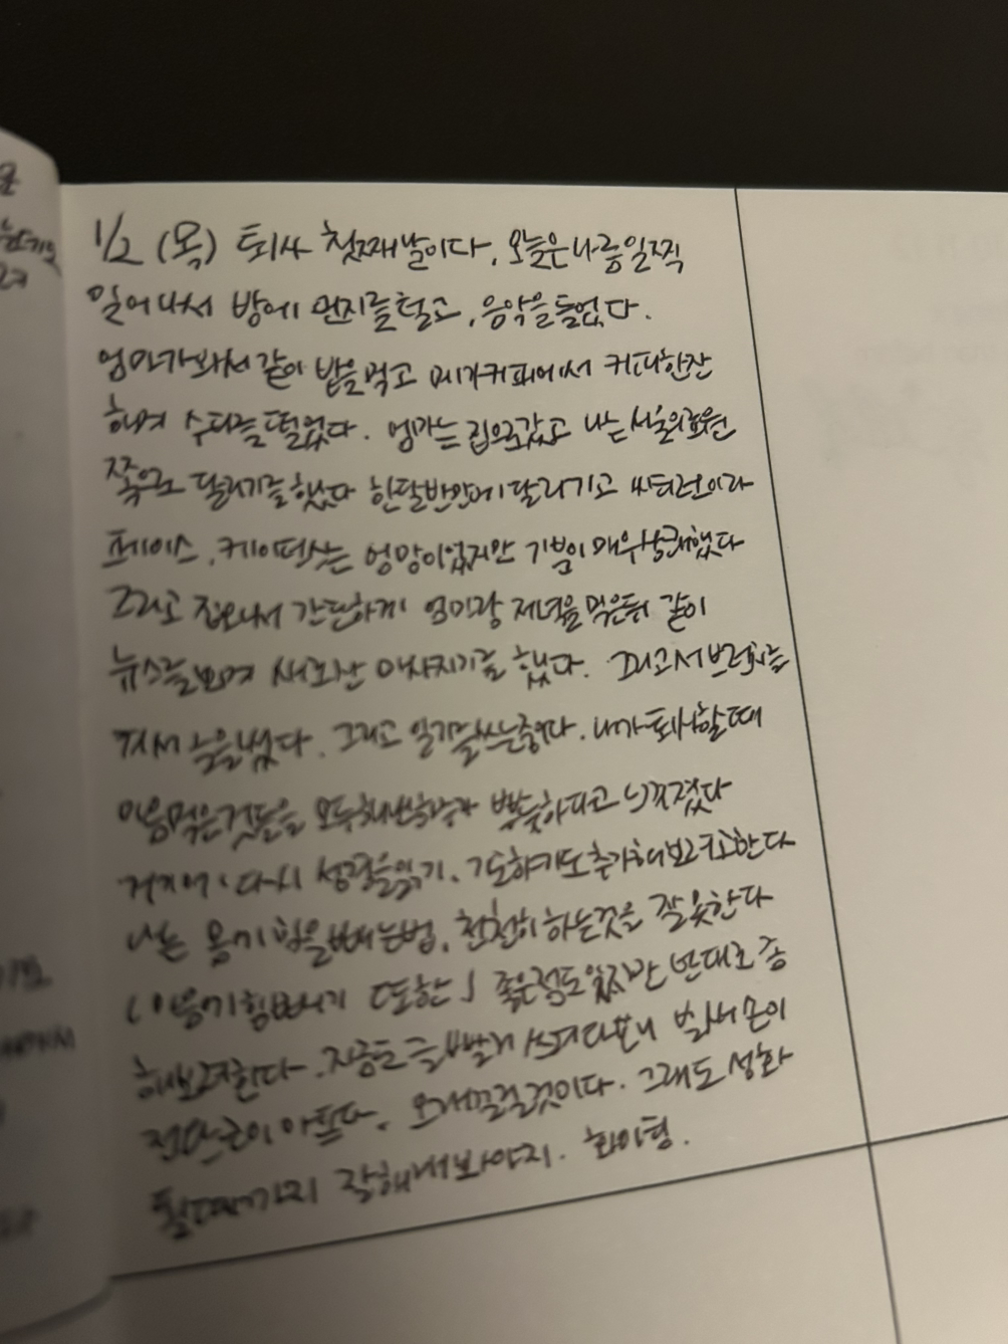 1/2 (목) 퇴사 첫째날이다. 오늘은 나름 일찍
일어나서 방에 먼지를 털고, 음악을 들었다.
엄마가 와서 같이 밥을 먹고 메가커피에서 커피한잔
하며 수다를 떨었다. 엄마는 집으로갔고 나는 서울의료원
쪽으로 달리기를 했다 한달반만에 달리기고 씨티런이라
페이스, 케이던스는 엉망이었지만 기분이 매우 상쾌했다
그리고 집와서 간단하게 엄마랑 저녁을 먹은뒤 같이
뉴스를보며 새로산 마사지기를 했다. 그리고서
누웠다. 그리고 일기를쓰는중이다. 내가 퇴사할때
마음먹은것들을 모두 느껴졌다
다시 성경을읽기, 기도하기도 추가해보려고한다
나는 몸에 힘을빼는법, 천천히 하는것을 잘 못한다
힘빼기 또한) 좋은점도있지만 반대로 좀
해보려한다. 지금도 글 빨리 쓰려다보니 벌써 손이
전완근이 아프다. 오래걸릴것이다. 그래도 성화
될때까지 잘해내봐야지. 화이팅.